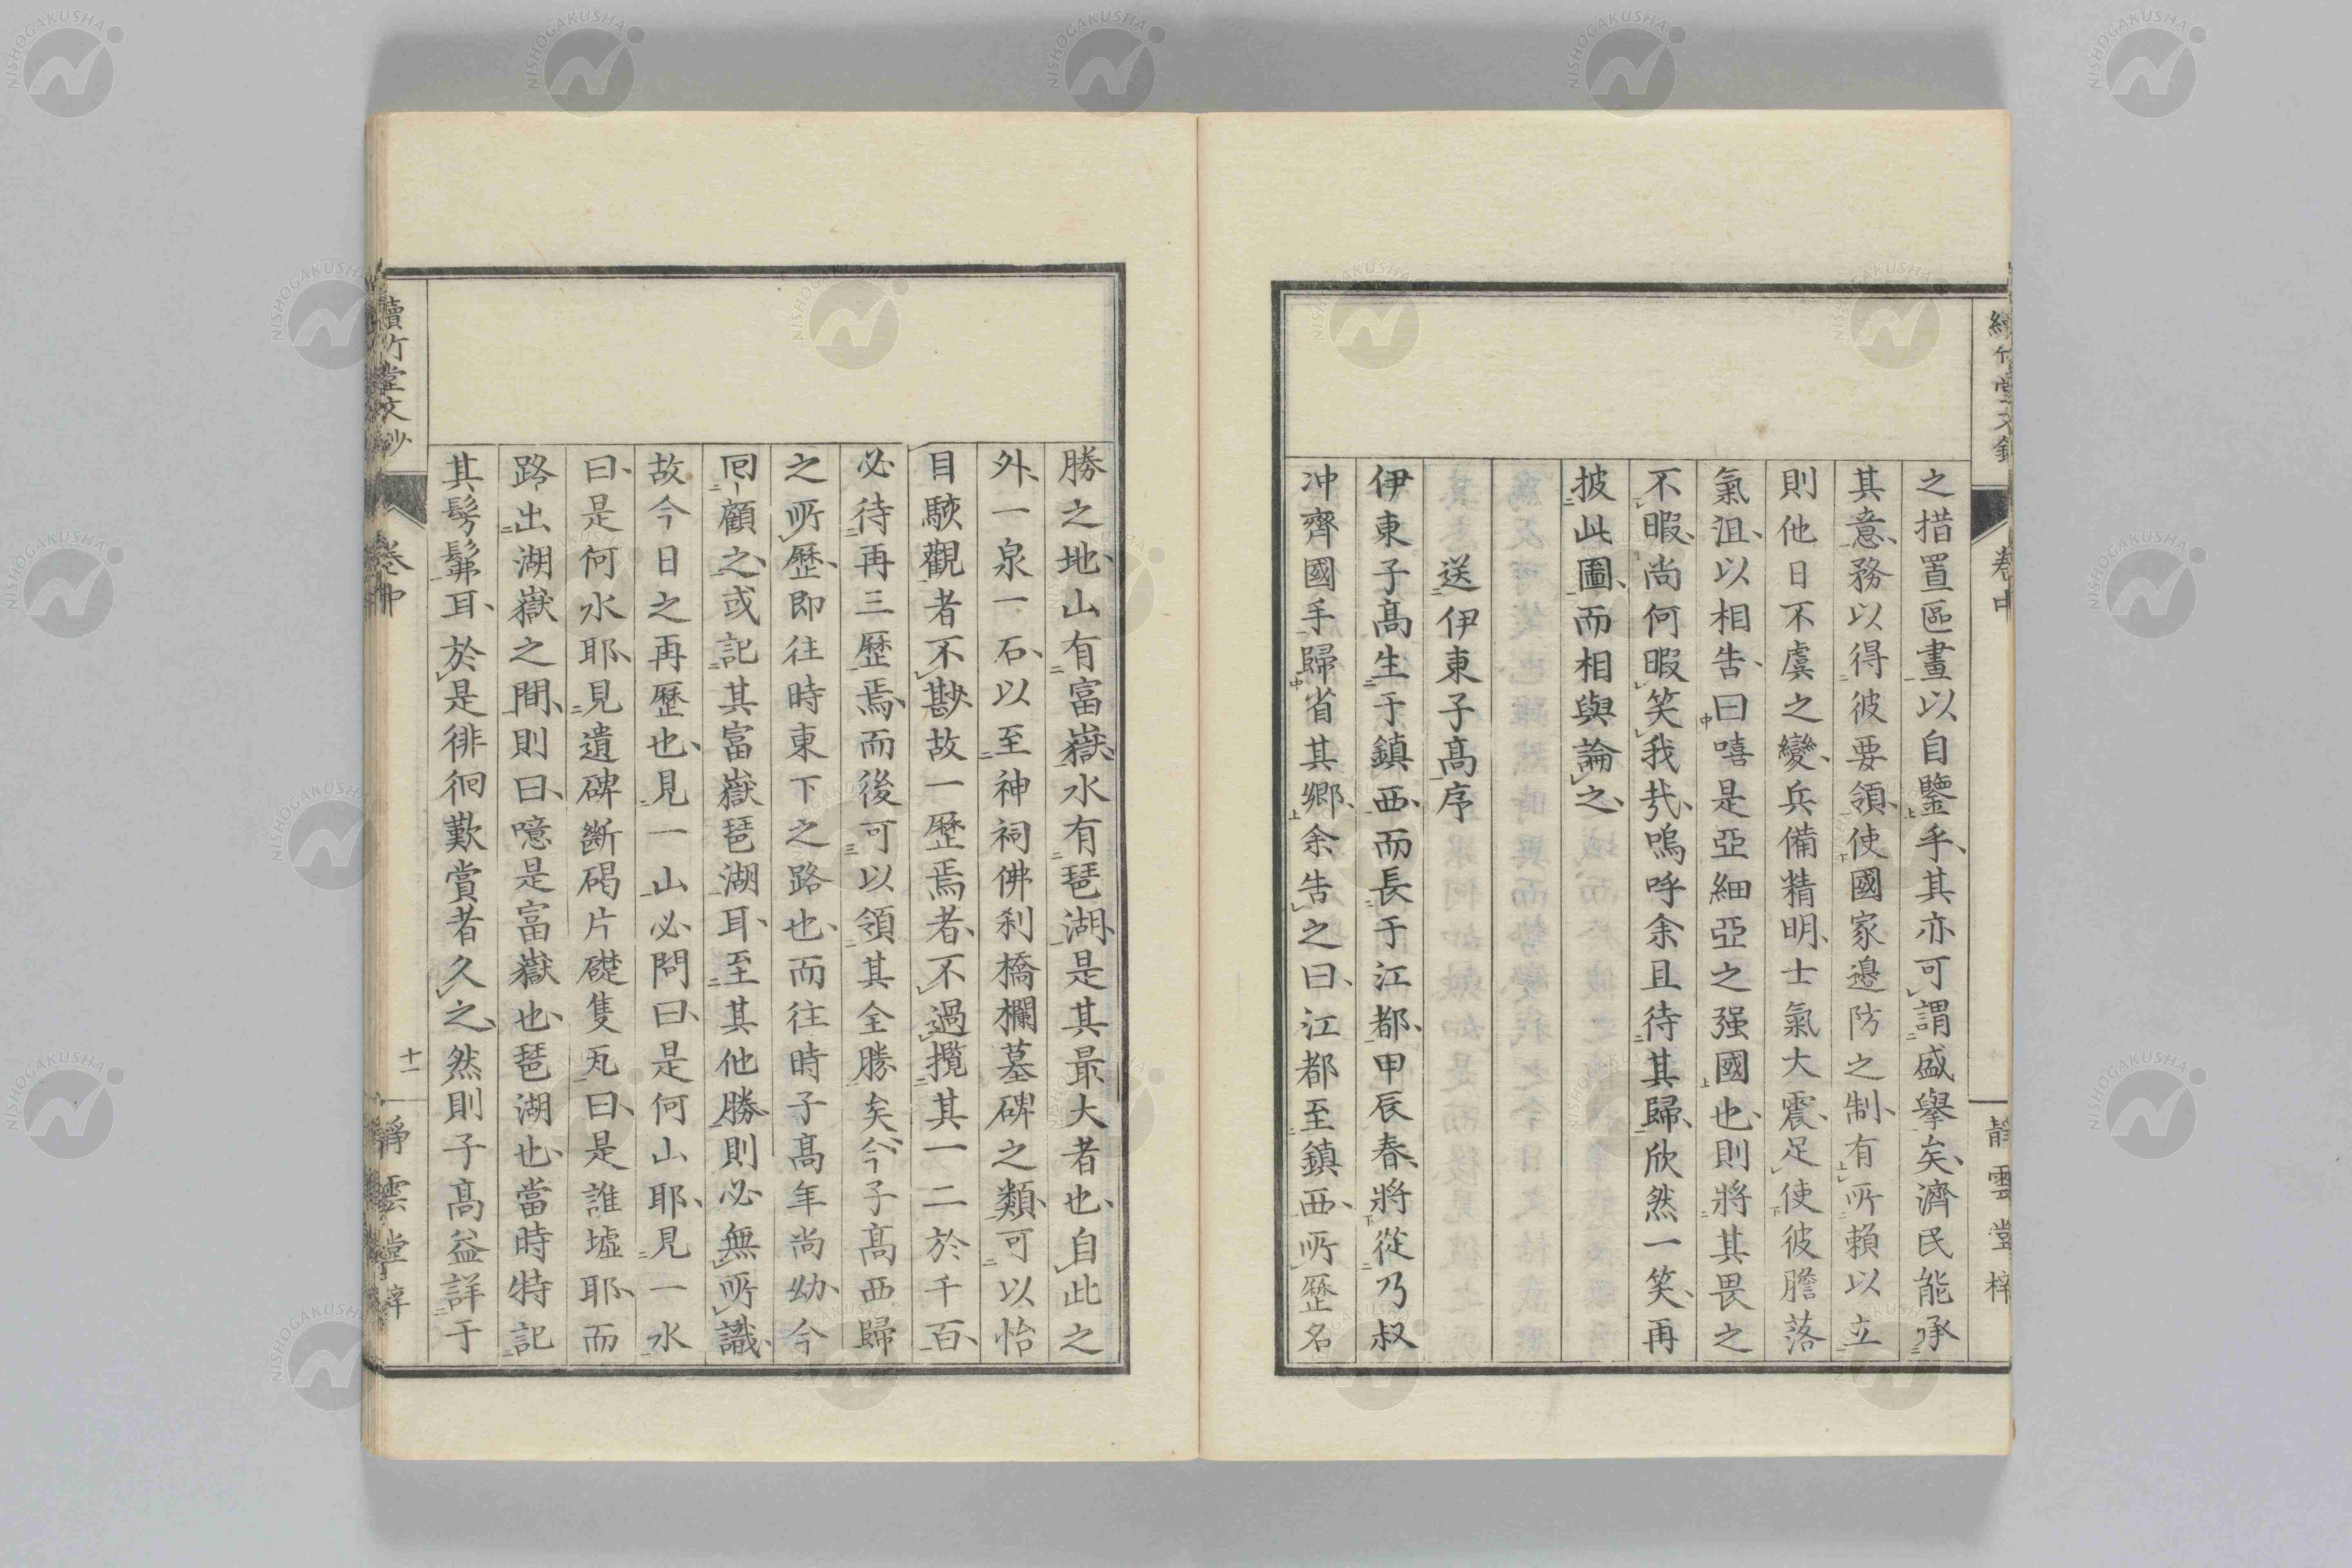 之措置區畫以自鑒乎、其亦可謂盛擧矣、濟民能承
其意、務以得彼要領、使國家邊防之制、有所賴以立
則他日不虞之變、兵備精明、士氣大震、足使彼膽落
氣沮、以相告、曰嘻是亞細亞之强國也、則將其畏之
不暇、尚何暇笑我哉、嗚呼余且待其歸、欣然一笑、再
披此圖、而相與論之、
送伊東子高序
伊東子高生于鎮西、而長于江都、甲辰春、將從乃叔
冲齊國手歸省其鄉、余告之曰、江都至鎮西、所歷名
勝之地、山有富嶽、水有琶湖、是其最大者也、自此之
外、一泉一石、以至神祠佛刹橋欄墓碑之類、可以怡
目駭觀者不尠故一歷焉者、不過攬其一二於千百、
必待再三歷焉、而後可以領其全勝矣、今子高西歸
之所歷、即往時東下之路也、而往時子高年尚幼、今
囘顧之、或記其富嶽琶湖耳、至其他勝則必無所識、
故今日之再歷也、見一山必問曰、是何山耶、見一水
曰、是何水耶、見遺碑斷碣片礎隻瓦曰、是誰墟耶、而
路出湖嶽之間、則曰、噫是富嶽也、琶湖也、當時特記
其髣髴耳、於是徘徊歎賞者久之、然則子高益詳于
續竹堂文鈔
卷中
十一
靜雲堂梓
NISHOGAKUSHA